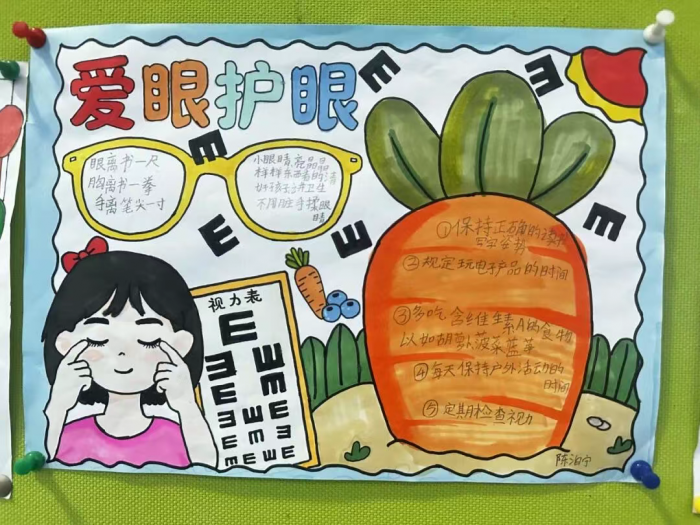 爱眼护眼
眼离书一尺
胸离书一拳
手离笔尖一寸
小眼睛,亮晶晶
样样东西看的清
好孩子讲卫生
不用脏手揉眼
睛
①保持正确的读书
写字姿势
②规定玩电子产品的时间
③多吃含维生素A的食物
以如胡萝卜菠菜蓝莓
④每天保持户外活动的
时间
⑤定期检查视力
视力表
E
E
E
E
E
陈泊宁